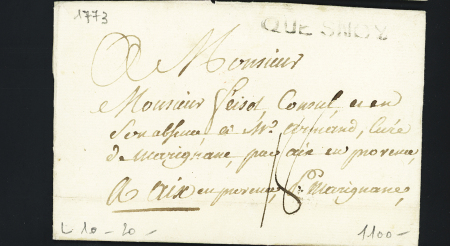 1773
QUESNOY
A Monsieur
Monsieur Consul, et en
Son absence a Mr. Armand, Curé
de Marignane, par aix en provence,
A aix en provence, pr. Marignane,
L 10 - 20 -
1100 -